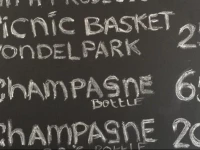 PICNIC BASKET 2
VONDELPARK
CHAMPAGNE 6
BOTTLE
CHAMPAGNE 20